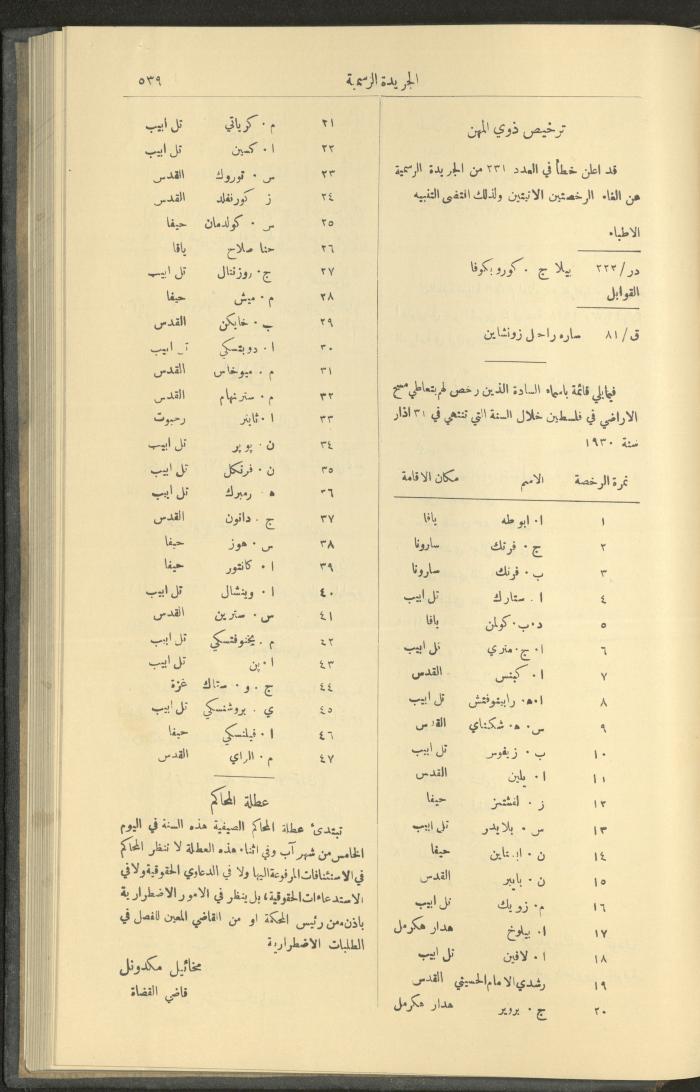 الجريدة الرسمية
٥٣٩
ترخيص ذوي المهن
قد اعلن خطأ في العدد ٢٣١ من الجريدة الرسمية
عن الغاء الرخصتين الاتيتين ولذلك اقتضى التنبيه
الاطباء
در/٢٢٣ بيلا ج . كوروبكوفا
القوابل
ق/٨١ ساره راحل زونشاين
فيمايلي قائمة باسماء السادة الذين رخص لهم بتعاطي مسح
الاراضي في فلسطين خلال السنة التي تنتهي في ٣١ اذار
سنة ١٩٣٠
نمرة الرخصة الاسم مكان الاقامة
١ ا٠ ابو طه يافا
٢ ج٠ فرنك سارونا
٣ ب٠ فرنك سارونا
٤ ا . ستارك تل ابيب
٥ د٠ب٠كولمن يافا
٦ ا٠ج٠منري تل ابيب
٧ ا٠ كيتس القدس
٨ ا٠ه٠ رابينوفتش تل ابيب
٩ س٠ ه٠ شكتاي القدس
١٠ ب٠ زيفوسر تل ابيب
١١ ا٠ يلين القدس
١٢ ز . لفشتز حيفا
١٣ س٠ بلايدر تل ابيب
١٤ ن٠ ابتاين حيفا
١٥ ن٠ بايبر القدس
١٦ م٠ زويك تل ابيب
١٧ ا٠ بيلوخ هدار هكرمل
١٨ ا٠ لافين تل ابيب
١٩ رشدي الامام الحسيني القدس
٢٠ ج٠ بروير هدار هكرمل
٢١ م٠ كرياتي تل ابيب
٢٢ ا٠ كسين تل ابيب
٢٣ س٠ قوروك القدس
٢٤ ز كورنفلد القدس
٢٥ س٠ كولدمان حيفا
٢٦ حنا صلاح يافا
٢٧ ج٠ روزنتال تل ابيب
٢٨ م٠ ميش حيفا
٢٩ ب٠ خايكن القدس
٣٠ ا٠ دوبتسكي تل ابيب
٣١ م . ميوخاس القدس
٣٢ م٠ سترنهام القدس
٣٣ ا٠ ثاينر رحبوت
٣٤ ن٠ پوپر تل ابيب
٣٥ ن٠ فرنكل تل ابيب
٣٦ ه٠ رمبرك تل ابيب
٣٧ ج . دانون القدس
٣٨ س٠ هوز حيفا
٣٩ ا٠ كانتور حيفا
٤٠ ا٠ وينشال تل ابيب
٤١ س٠ سترين القدس
٤٢ م . يخنوفتسكي تل ابيب
٤٣ ا٠ بن تل ابيب
٤٤ ج٠و٠ ستاك غزة
٤٥ ي . بروشنسكي تل ابيب
٤٦ ا٠ فيلنسكي حيفا
٤٧ م٠ الراي القدس
عطلة المحاكم
تبتدئ عطلة المحاكم الصيفية هذه السنة في اليوم
الخامس من شهر آب وفي اثناء هذه العطلة لا تنظر المحاكم
في الاستئنافات المرفوعة اليها ولا في الدعاوي الحقوقية ولا في
الاستدعاءات الحقوقية، بل ينظر في الامور الاضطرارية
باذن من رئيس المحكمة او من القاضي المعين للفصل في
الطلبات الاضطرارية
مخائيل مكدونل
قاضي القضاة